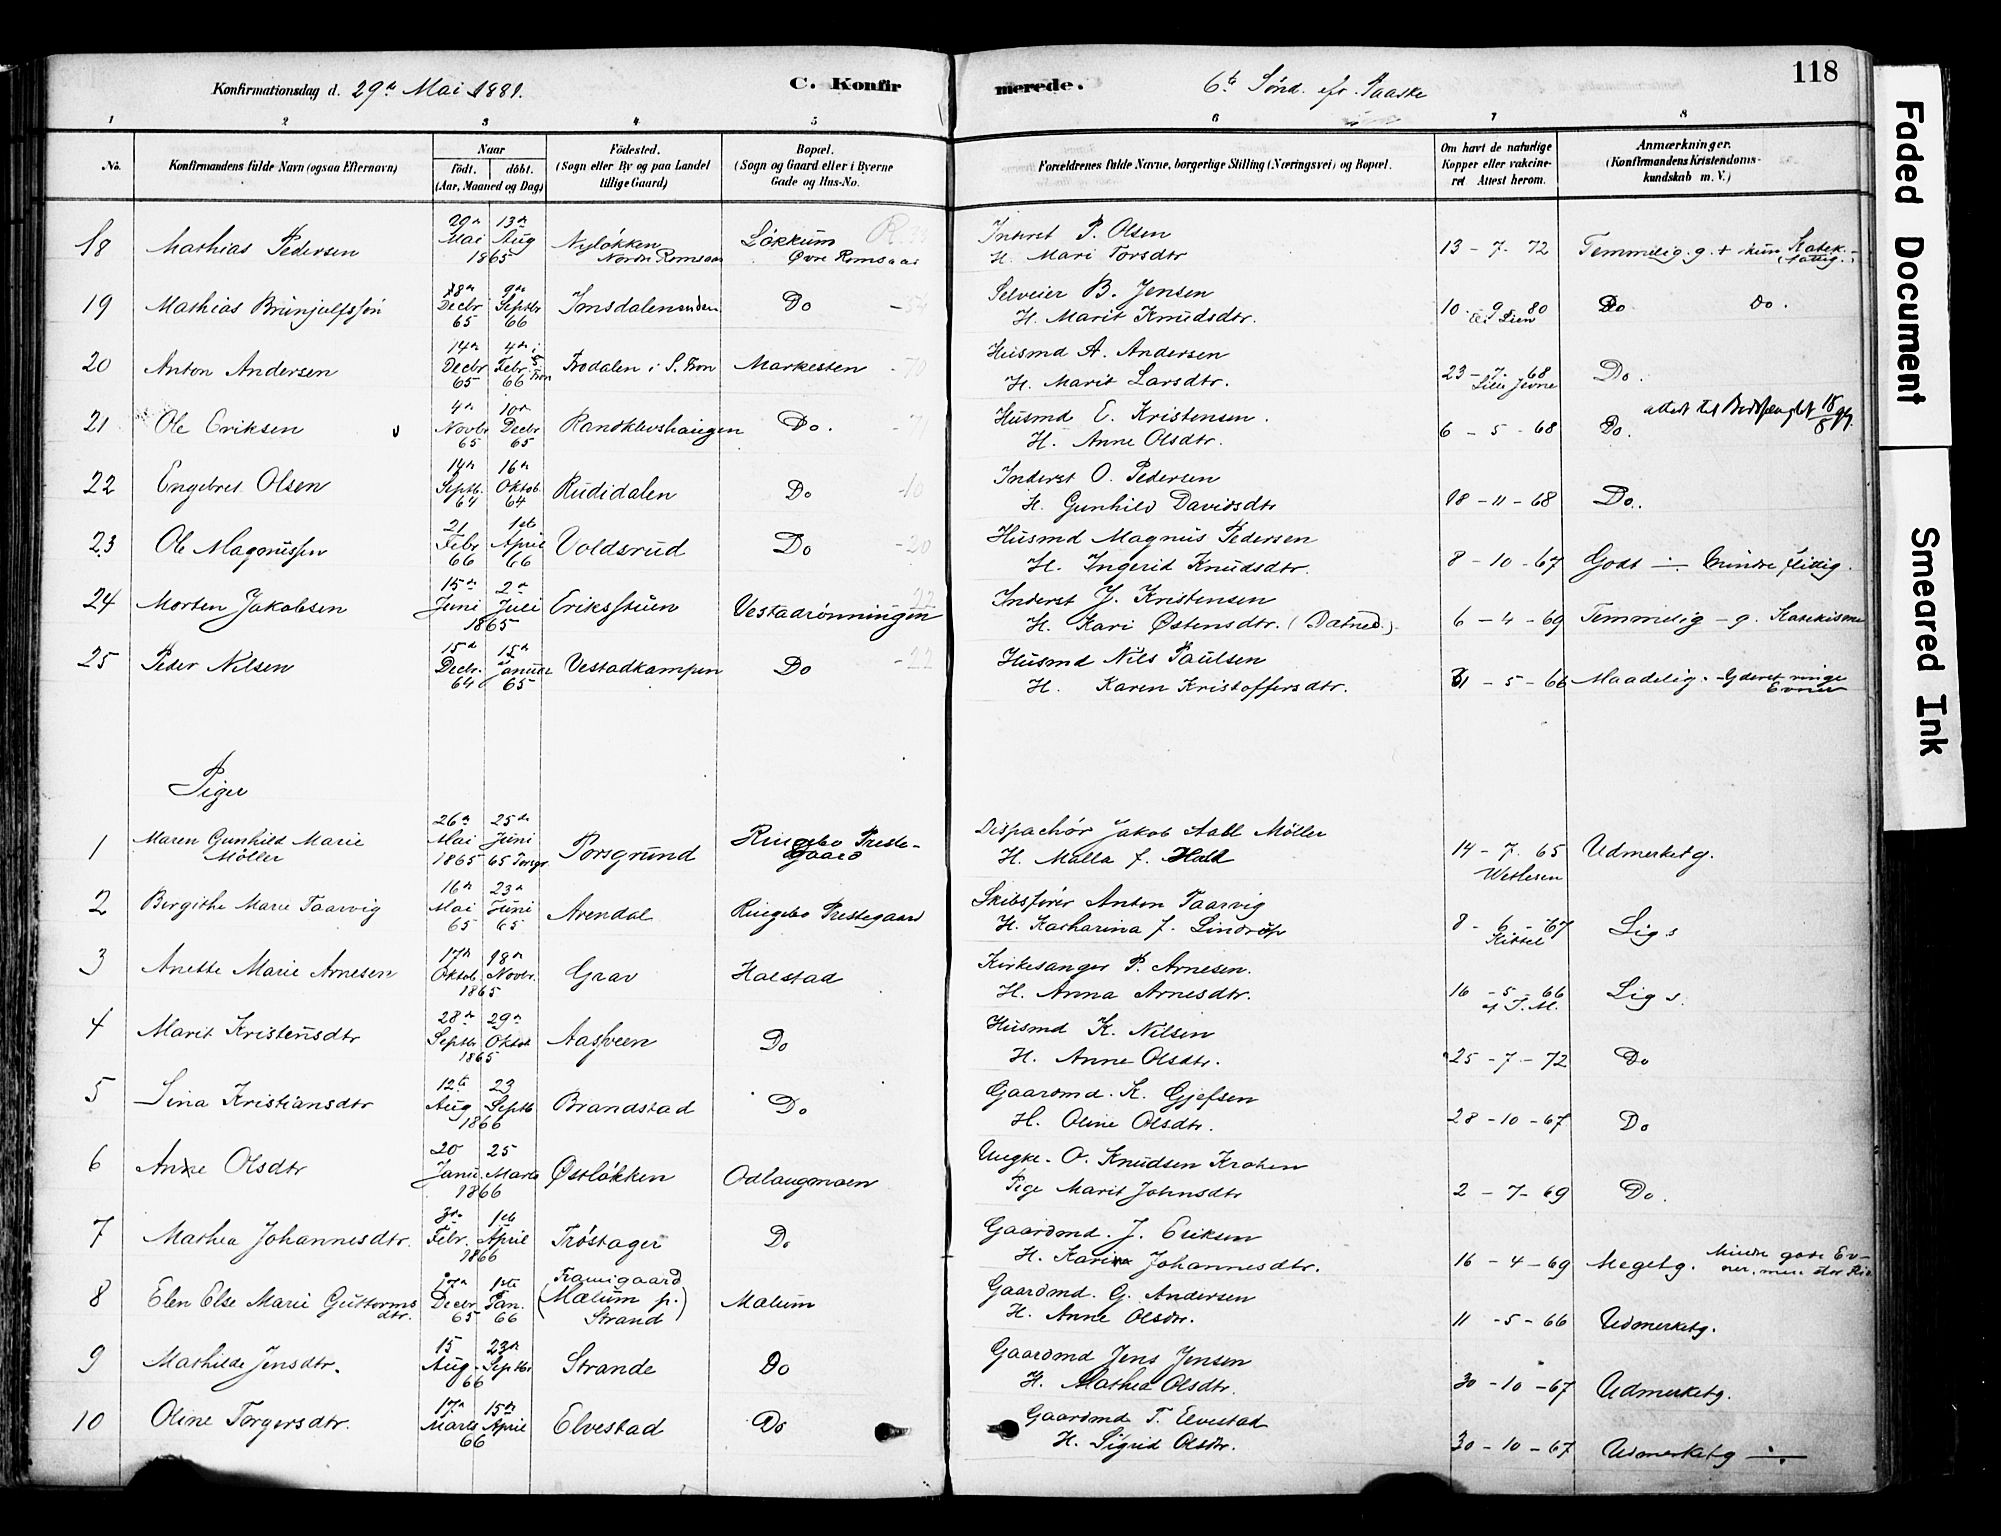 118
Konfirmationsdag d. 29de Mai 1881. C. Konfirmerede. 6te Sønd. efr. Paaske
1 2 3 4 5 6 7 8
No. Konfirmandens fulde Navn (ogsaa Efternavn) Naar født. døbt. (Aar, Maaned og Dag) Fødested. (Sogn eller By og paa Landet tillige Gaard) Bopæl. (Sogn og Gaard eller i Byerne Gade og Hus-No. Forældrenes fulde Navne, borgerlige Stilling (Næringsvei) og Bopæl. Om havt de naturlige Kopper eller vakcineret Attest herom. Anmærkninger. (Konfirmandens Kristendomskundskab m. V.)
18 Mathias Pedersen 29de Mai 13de Aug 1865 Nyløkken Nordre Romsaas Løkkum Øvre Romsaas Inderst P. Olsen H. Mari Torsdtr 13 - 7 - 72 Temmelig g. + kun Katek.
19 Mathias Brünjulfssøn 18de Decbr 65 9de Septbr 66 Imsdalen Do Selveier B. Jensen H. Marit Knudsdtr. 10 - 9 - 80 Lien Do Do.
20 Anton Andersen 14de Decbr 65 4de Febr 66 i S. Fron Frodalen i S. Fron Markesten Husmd A. Andersen H. Marit Larsdtr. 23 - 7 - 68 Do.
21 Ole Eriksen 4de Novbr 65 10de Decbr 65 Randklevshaugen Do. Husmd E. Kristensen. H. Anne Olsdtr. 6 - 5 - 68 Do. attest til
22 Engebret Olsen 14de Septb. 64 16de Oktob 64 Rudidalen Do Inderst O. Pedersen H. Gunhild Davidsdtr 18 - 11 - 68 Do.
23 Ole Magnussen 21 Febr 66 1ste April 66 Voldsrud Do Husmd Magnus Pedersen H. Ingerid Knudsdtr. 8 - 10 - 67 Godt mindre flittig.
24 Morten Jakobsen 15de Juni 2de Juli 1865 Eriksstuen Vestadrønningen Inderst J. Kristensen H. Kari Østensdtr. 6 - 4 - 69 Temmelig - g. Katekisme
25 Peder Nilsen 15de Decbr. 64 15de Januar 65 Vestadkampen Do Husmd Nils Paulsen H. Karen Kristoffersdtr. 31 - 5 - 66 Maadelig. ringe Evner
Piger
1 Maren Gunhild Marie Møller 26de Mai 1865 25de Juni 65 Porsgr Porsgrund Ringebo Prestegaard Dispachør Jakob Aall Møller H. Malla f. Hall 14 - 7 - 65 Wetlesen Udmerketg.
2 Bergithe Marie Taarvig 16de Mai 65 23de Juni 65 Arendal Ringebo Prestegaard Skibsfører Anton Taarvig H. Katharina f. Lindrup 8 - 6 - 67 Kittel Lig s
3 Anette Marie Arnesen 17de Oktob. 18de Novbr. 1865 Grav Halstad Kirkesanger P. Arnesen. H. Anna Arnesdtr. 16 - 5 - 66 Lig s.
4 Marit Kristensdtr 28de Septbr 29de Oktob 1865 Aasveen Do Husmd K. Nilsen H. Anne Olsdtr. 25 - 7 - 72 Do
5 Lina Kristiansdtr 12te Aug 23 Septb 1866 Brandstad Do Gaardmd. K. Gjefsen H. Oline Olsdtr. 28 - 10 - 67 Do
6 Anne Olsdtr 20 Janu. 25 Marts 1866 Østløkken Odlaugmoen Ungke. O. Knudsen Krohen Pige Marit Johnsdtr 2 - 7 - 69 Do.
7 Mathea Johannesdtr. Febr. 1ste April 1866 Trøstager Do Gaardmd. J. Eriksen H. Kari Johannesdtr. 16 - 4 - 69 Megetg. Mindre gode Evner, men stor
8 Elen Else Marie Guttormsdtr. Decbr 65 1ste Jan. 66 Framigaard (Mælum p.) Strand Mælum Gaardmd. G. Andersen H. Anne Olsdtr. 11 - 5 - 66 Udmerketg.
9 Mathilde Jensdtr. 15 Aug. 23de Septbr 66 Strande Do Gaardmd Jens Jensen H. Mathea Olsdtr. 30 - 10 - 67 Udmerketg.
10 Oline Torgersdtr. 17de Marts 15de April 66 Elvestad Do Gaardmd T. Elvestad H. Sigrid Olsdtr. 30 - 10 - 67 Udmerketg
Faded Document
Smeared Ink